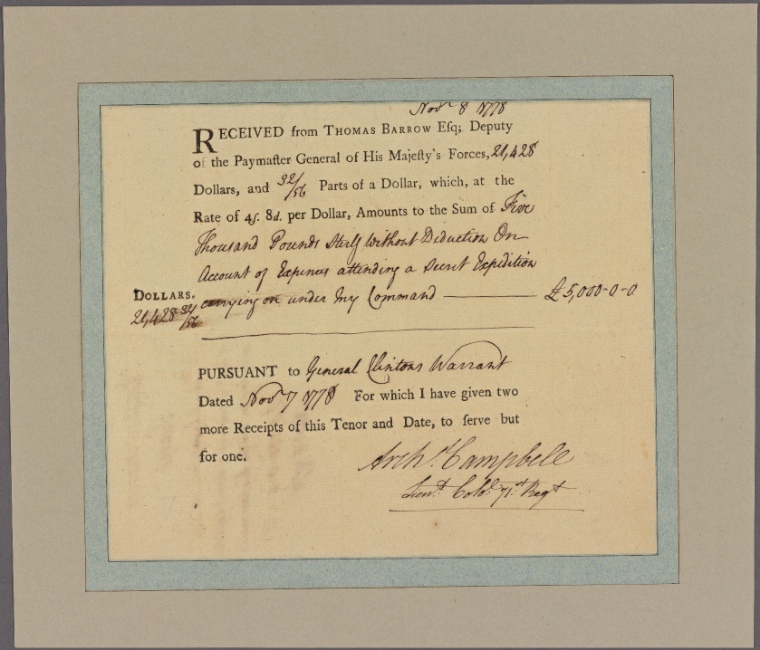 Novr 8 1778
RECEIVED from THOMAS BARROW Eſq; Deputy
of the Paymaſter General of His Majeſty's Forces, 21,428
Dollars, and 32/56 Parts of a Dollar, which, at the
Rate of 4ſ. 8d. per Dollar, Amounts to the Sum of Five
Thousand Pounds Sterlg without Deduction On
Account of Expences attending a Secret Expedition
carrying on under my Command £5,000-0-0
DOLLARS.
21,428 32/56
PURSUANT to General Clintons Warrant
Dated Novr 7 1778 For which I have given two
more Receipts of this Tenor and Date, to ſerve but
for one.
Archd Campbell
Lieut. Colol. 71st Regt